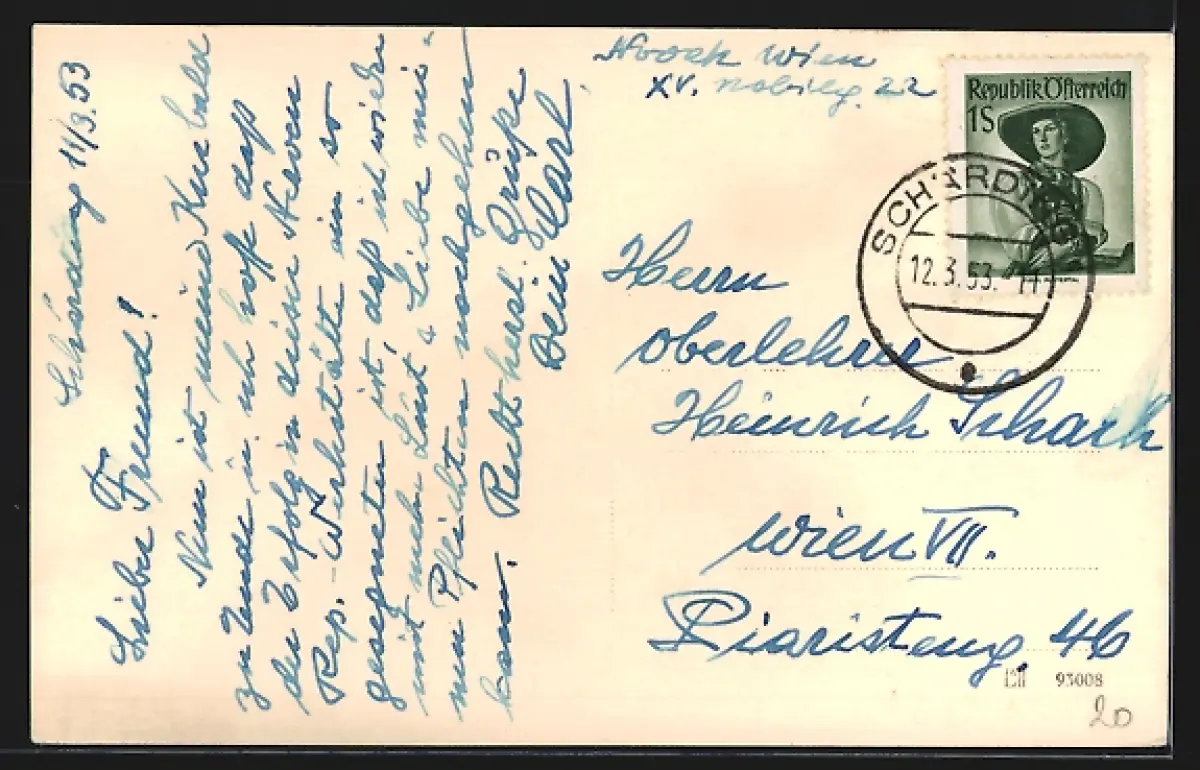 Schärding 11/3.53
Lieber Freund!
Nun ist meine Kur bald
zu Ende u. ich hoffe daß
der Erfolg in dieser Nerven
Rep.-Werkstätte ein so
gesegneter ist, daß ich wieder
mit mehr Lust & Liebe mei-
nen Pflichten nachgehen
kann.
Recht herzl. Grüße
Dein Karl
Wien
XV. 22
Republik Österreich
1S
SCHÄRDING
12.3.53.-11
Herrn
Oberlehrer
Heinrich
Wien VII.
Piaristeng. 46
93008
20